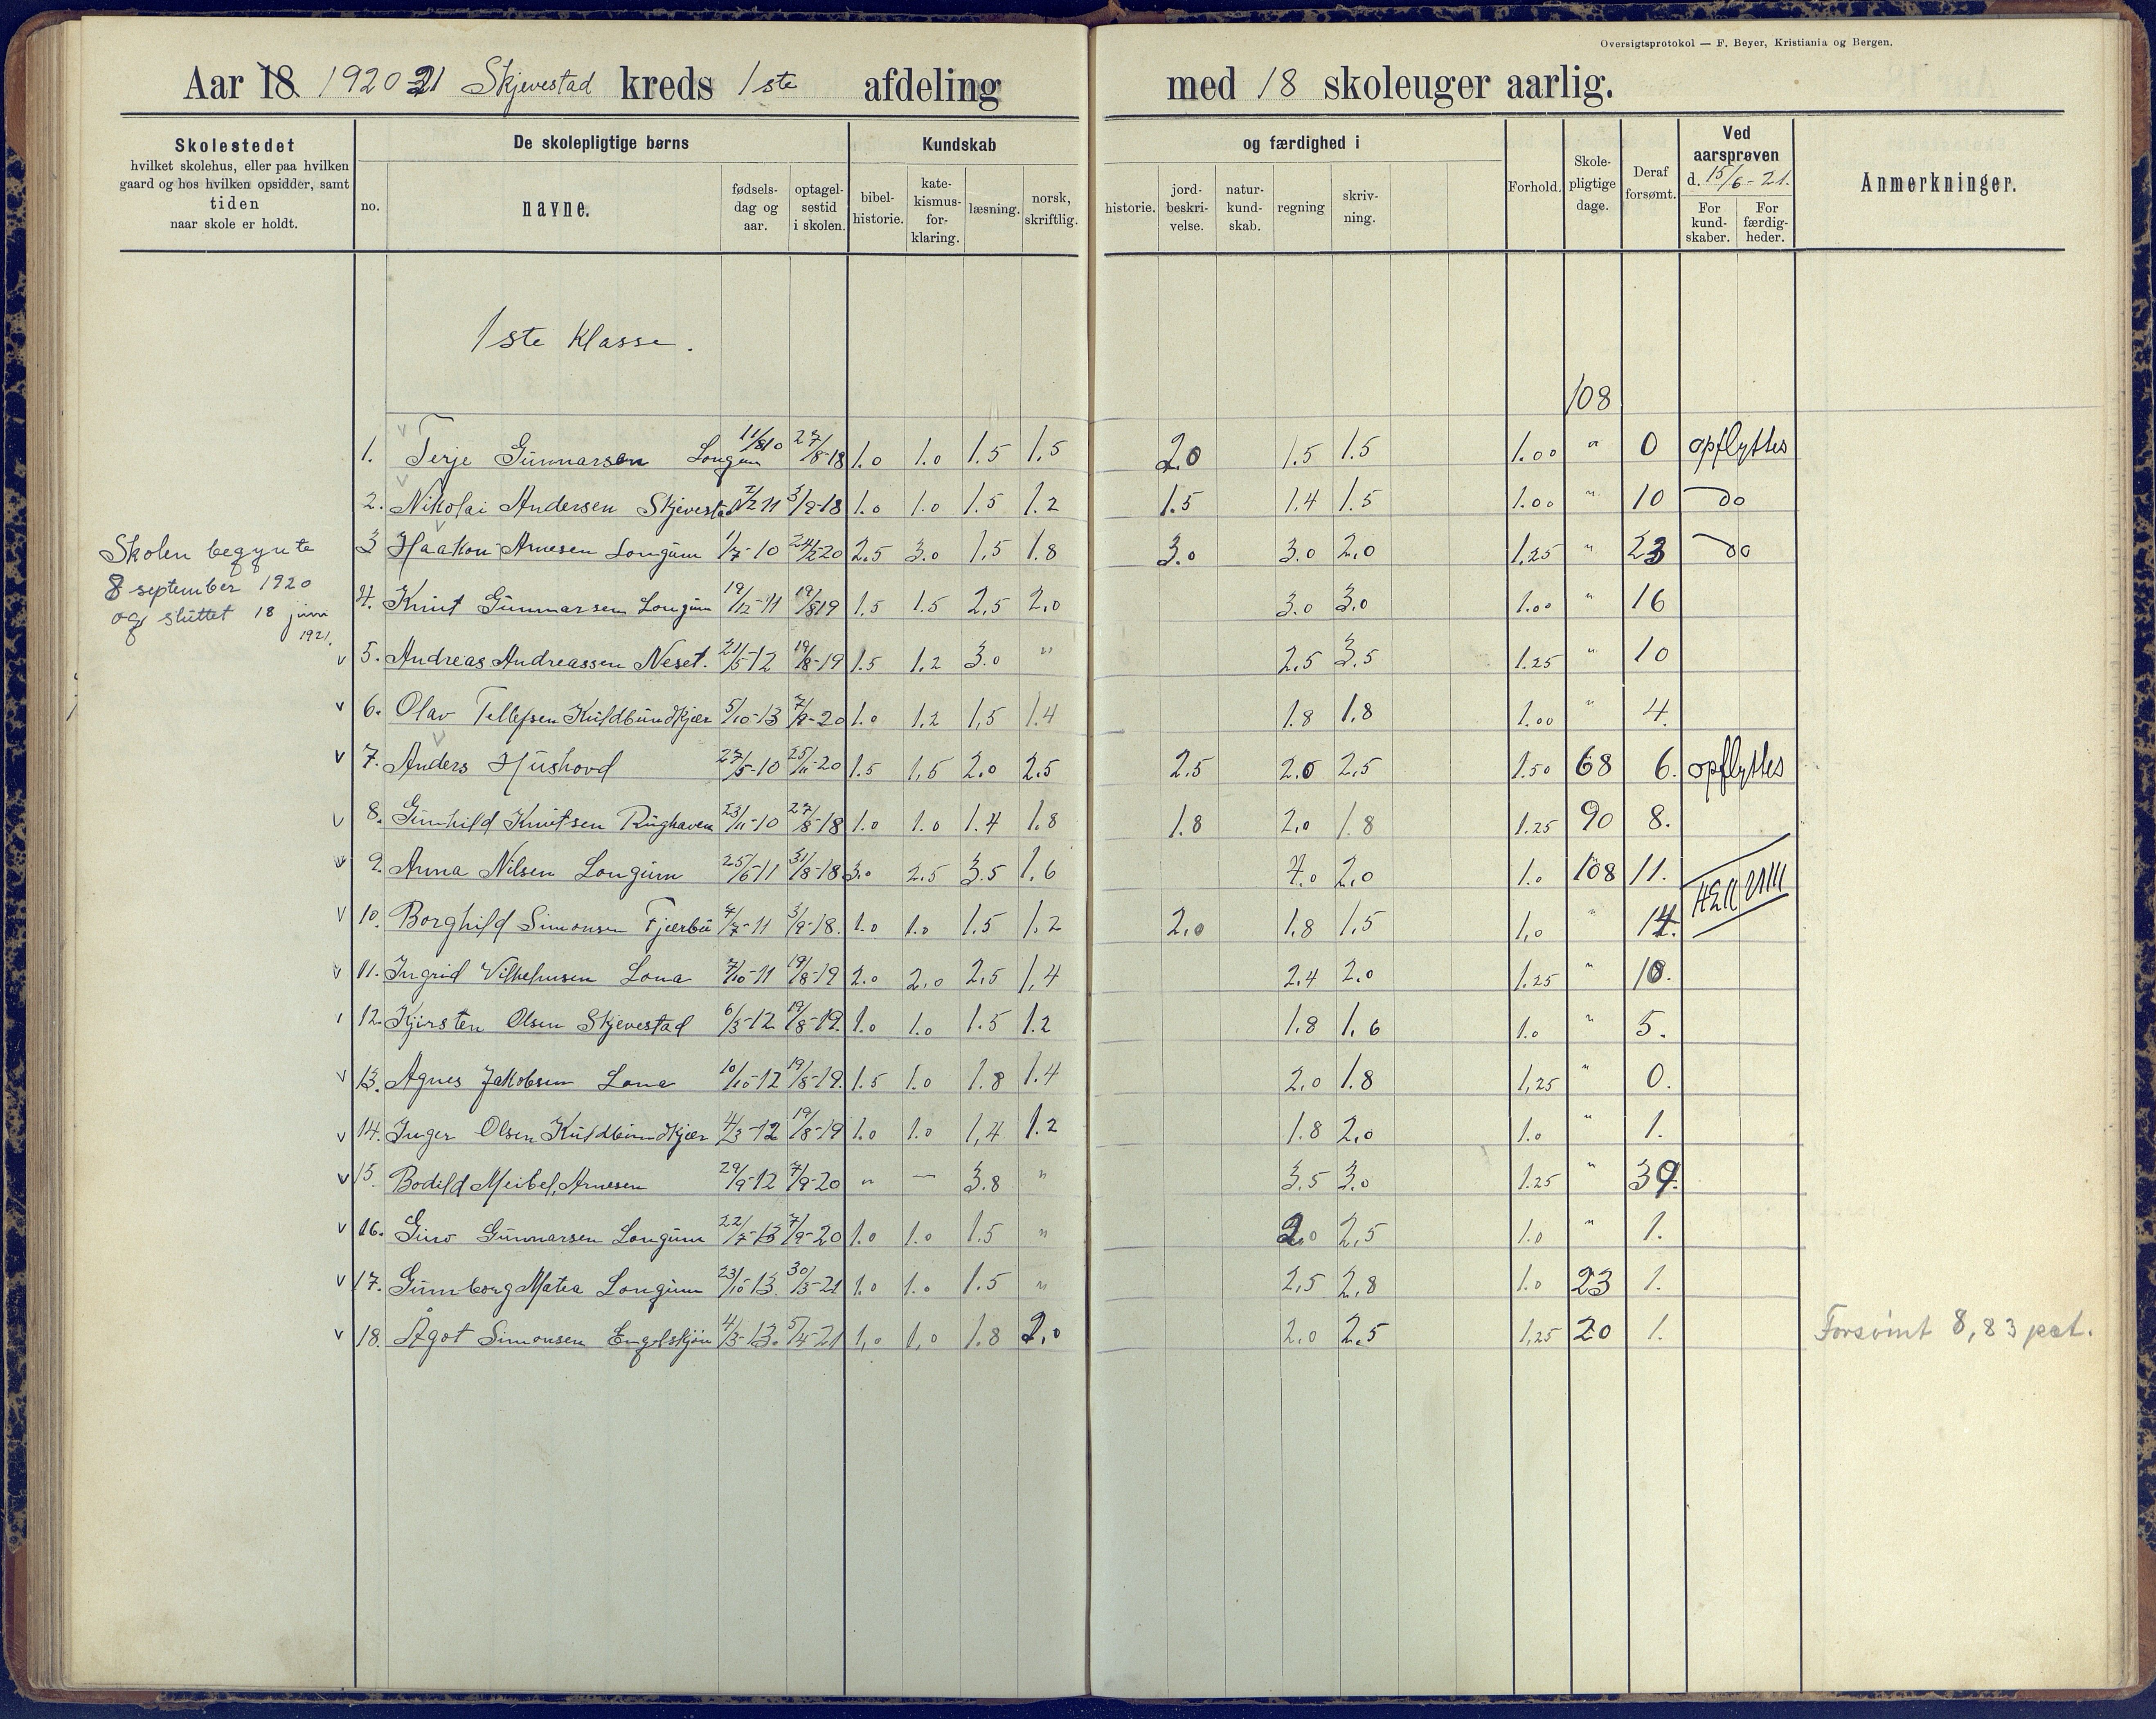 Oversigtsprotokol — F. Beyer, Kristiania og Bergen.
Aar 18 1920 21 Skjevestad kreds 1ste afdeling med 18 skoleuger aarlig.
Skolestedet
hvilket skolehus, eller paa hvilken
gaard og hos hvilken opsidder, samt
tiden
naar skole er holdt.
De skolepligtige børns
no.
navne.
fødsels-
dag og
aar.
optagel-
sestid
i skolen.
Kundskab
bibel-
historie.
kate-
kismus-
for-
klaring.
læsning.
norsk,
skriftlig.
og færdighed i
historie.
jord-
beskri-
velse.
natur-
kund-
skab.
regning
skriv-
ning.
Forhold.
Skole-
pligtige
dage.
Deraf
forsømt.
Ved
aarsprøven
d. 15/6-21.
For
kund-
skaber.
For
færdig-
heder.
Anmerkninger.
1ste Klasse.
108
Skolen begynte
8 september 1920
og sluttet 18 juni
1921.
1. Terje Gunnarsen Longum 11/8 10 27/8-18 1.0 1.0 1.5 1.5 2.0 1.5 1.5 1.00 " 0 opflyttes
2. Nikolai Andersen Skjevestad 7/2 11 3/9-18 1.0 1.0 1.5 1.2 1.5 1.4 1.5 1.00 " 10 do
3 Haakon Arnesen Longum 1/7-10 24/2-20 2.5 3.0 1.5 1.8 3.0 3.0 2.0 1.25 " 23 do
4. Knut Gunnarsen Longum 19/12-11 19/8 19 1.5 1.5 2.5 2.0 3.0 3.0 1.00 " 16
v 5. Andreas Andreassen Neset. 21/5-12 19/8-19 1.5 1.2 3.0 " 2.5 3.5 1.25 " 10
v 6. Olav Tellefsen Kuldbundkjær 5/10-13 7/9-20 1.0 1.2 1.5 1.4 1.8 1.8 1.00 " 4.
v 7. Anders Hushovd 27/5-10 25/11-20 1.5 1.5 2.0 2.5 2.5 2.0 2.5 1.50 68 6. opflyttes
v 8. Gunhild Knutsen Rughaven 23/11-10 27/8-18 1.0 1.0 1.4 1.8 1.8 2.0 1.8 1.25 90 8.
v 9. Anna Nilsen Longum 25/6-11 31/8-18 3.0 2.5 3.5 1.6 4.0 2.0 1.0 108 11.
v 10. Borghild Simonsen Fjærbu 7/7-11 3/9-18. 1.0 1.0 1.5 1.2 2.0 1.8 1.5 1.0 " 14.
v 11. Ingrid Vilhelmsen Lona 7/10-11 19/8-19 2.0 2.0 2.5 1.4 2.4 2.0 1.25 " 10.
12. Kjirsten Olsen Skjevestad 6/3-12 19/8-19. 1.0 1.0 1.5 1.2 1.8 1.6 1.0 " 5.
v 13. Agnes Jakobsen Lona 10/10-12 19/8-19. 1.5 1.0 1.8 1.4 2.0 1.8 1.25 " 0.
v 14. Inger Olsen Kuldbundkjær 4/3-12 19/8-19 1.0 1.0 1.4 1.2 1.8 2.0 1.0 " 1.
v 15. Bodild Meibel, Arnesen 29/9-12 7/9-20 " — 3.8 " 3.5 3.0 1.25 " 39.
v 16. Guro Gunnarsen Longum 22/7-13 7/9-20 1.0 1.0 1.5 " 2.0 2.5 1.0 " 1.
v 17. Gunnborg Matea Longum 23/10-13. 30/3-21 1.0 1.0 1.5 " 2.5 2.8 1.0 23 1.
v 18. Ågot Simonsen Engelskjøn 4/3-13. 5/4-21 1.0 1.0 1.8 2.0 2.0 2.5 1.25 20 1. Forsømt 8,83 pct.